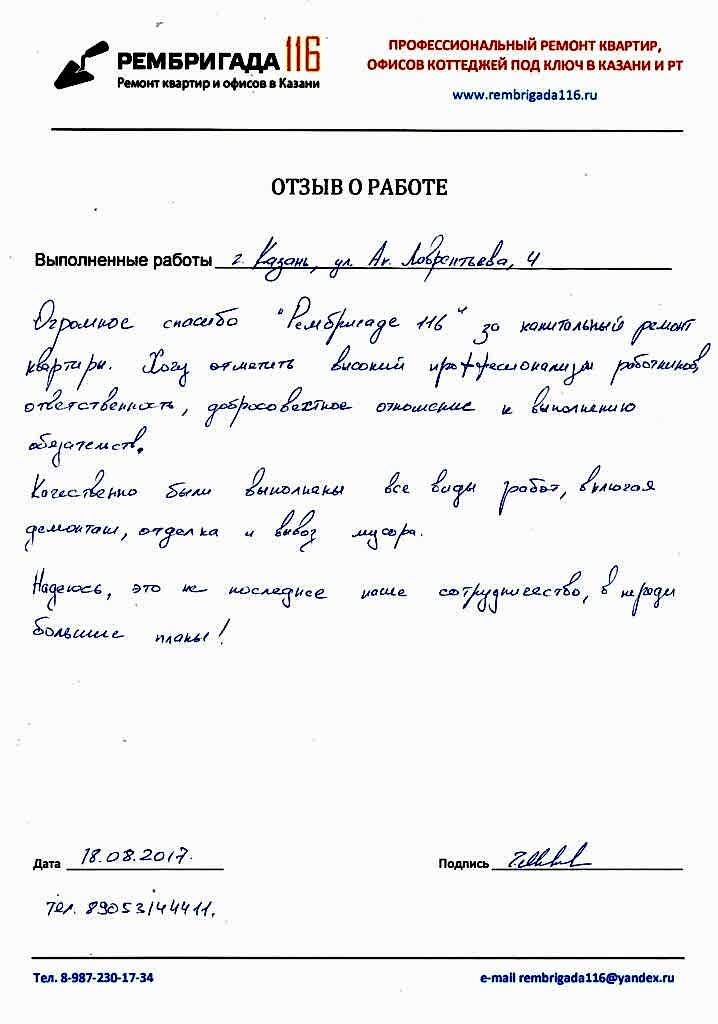 РЕМБРИГАДА 116
Ремонт квартир и офисов в Казани
ПРОФЕССИОНАЛЬНЫЙ РЕМОНТ КВАРТИР,
ОФИСОВ КОТТЕДЖЕЙ ПОД КЛЮЧ В КАЗАНИ И РТ
www.rembrigada116.ru
ОТЗЫВ О РАБОТЕ
Выполненные работы г. Казань, ул. Ак. Лаврентьева, 4
Огромное спасибо "Рембригаде 116" за капитальный ремонт
квартиры. Хочу отметить высокий профессионализм работников,
ответственность, добросовестное отношение к выполнению
обязательств.
Качественно были выполнены все виды работ, включая
демонтаж, отделка и вывоз мусора.
Надеюсь, это не последнее наше сотрудничество, впереди
большие планы!
Дата 18.08.2017.
Подпись
тел. 89053144411.
Тел. 8-987-230-17-34
e-mail rembrigada116@yandex.ru